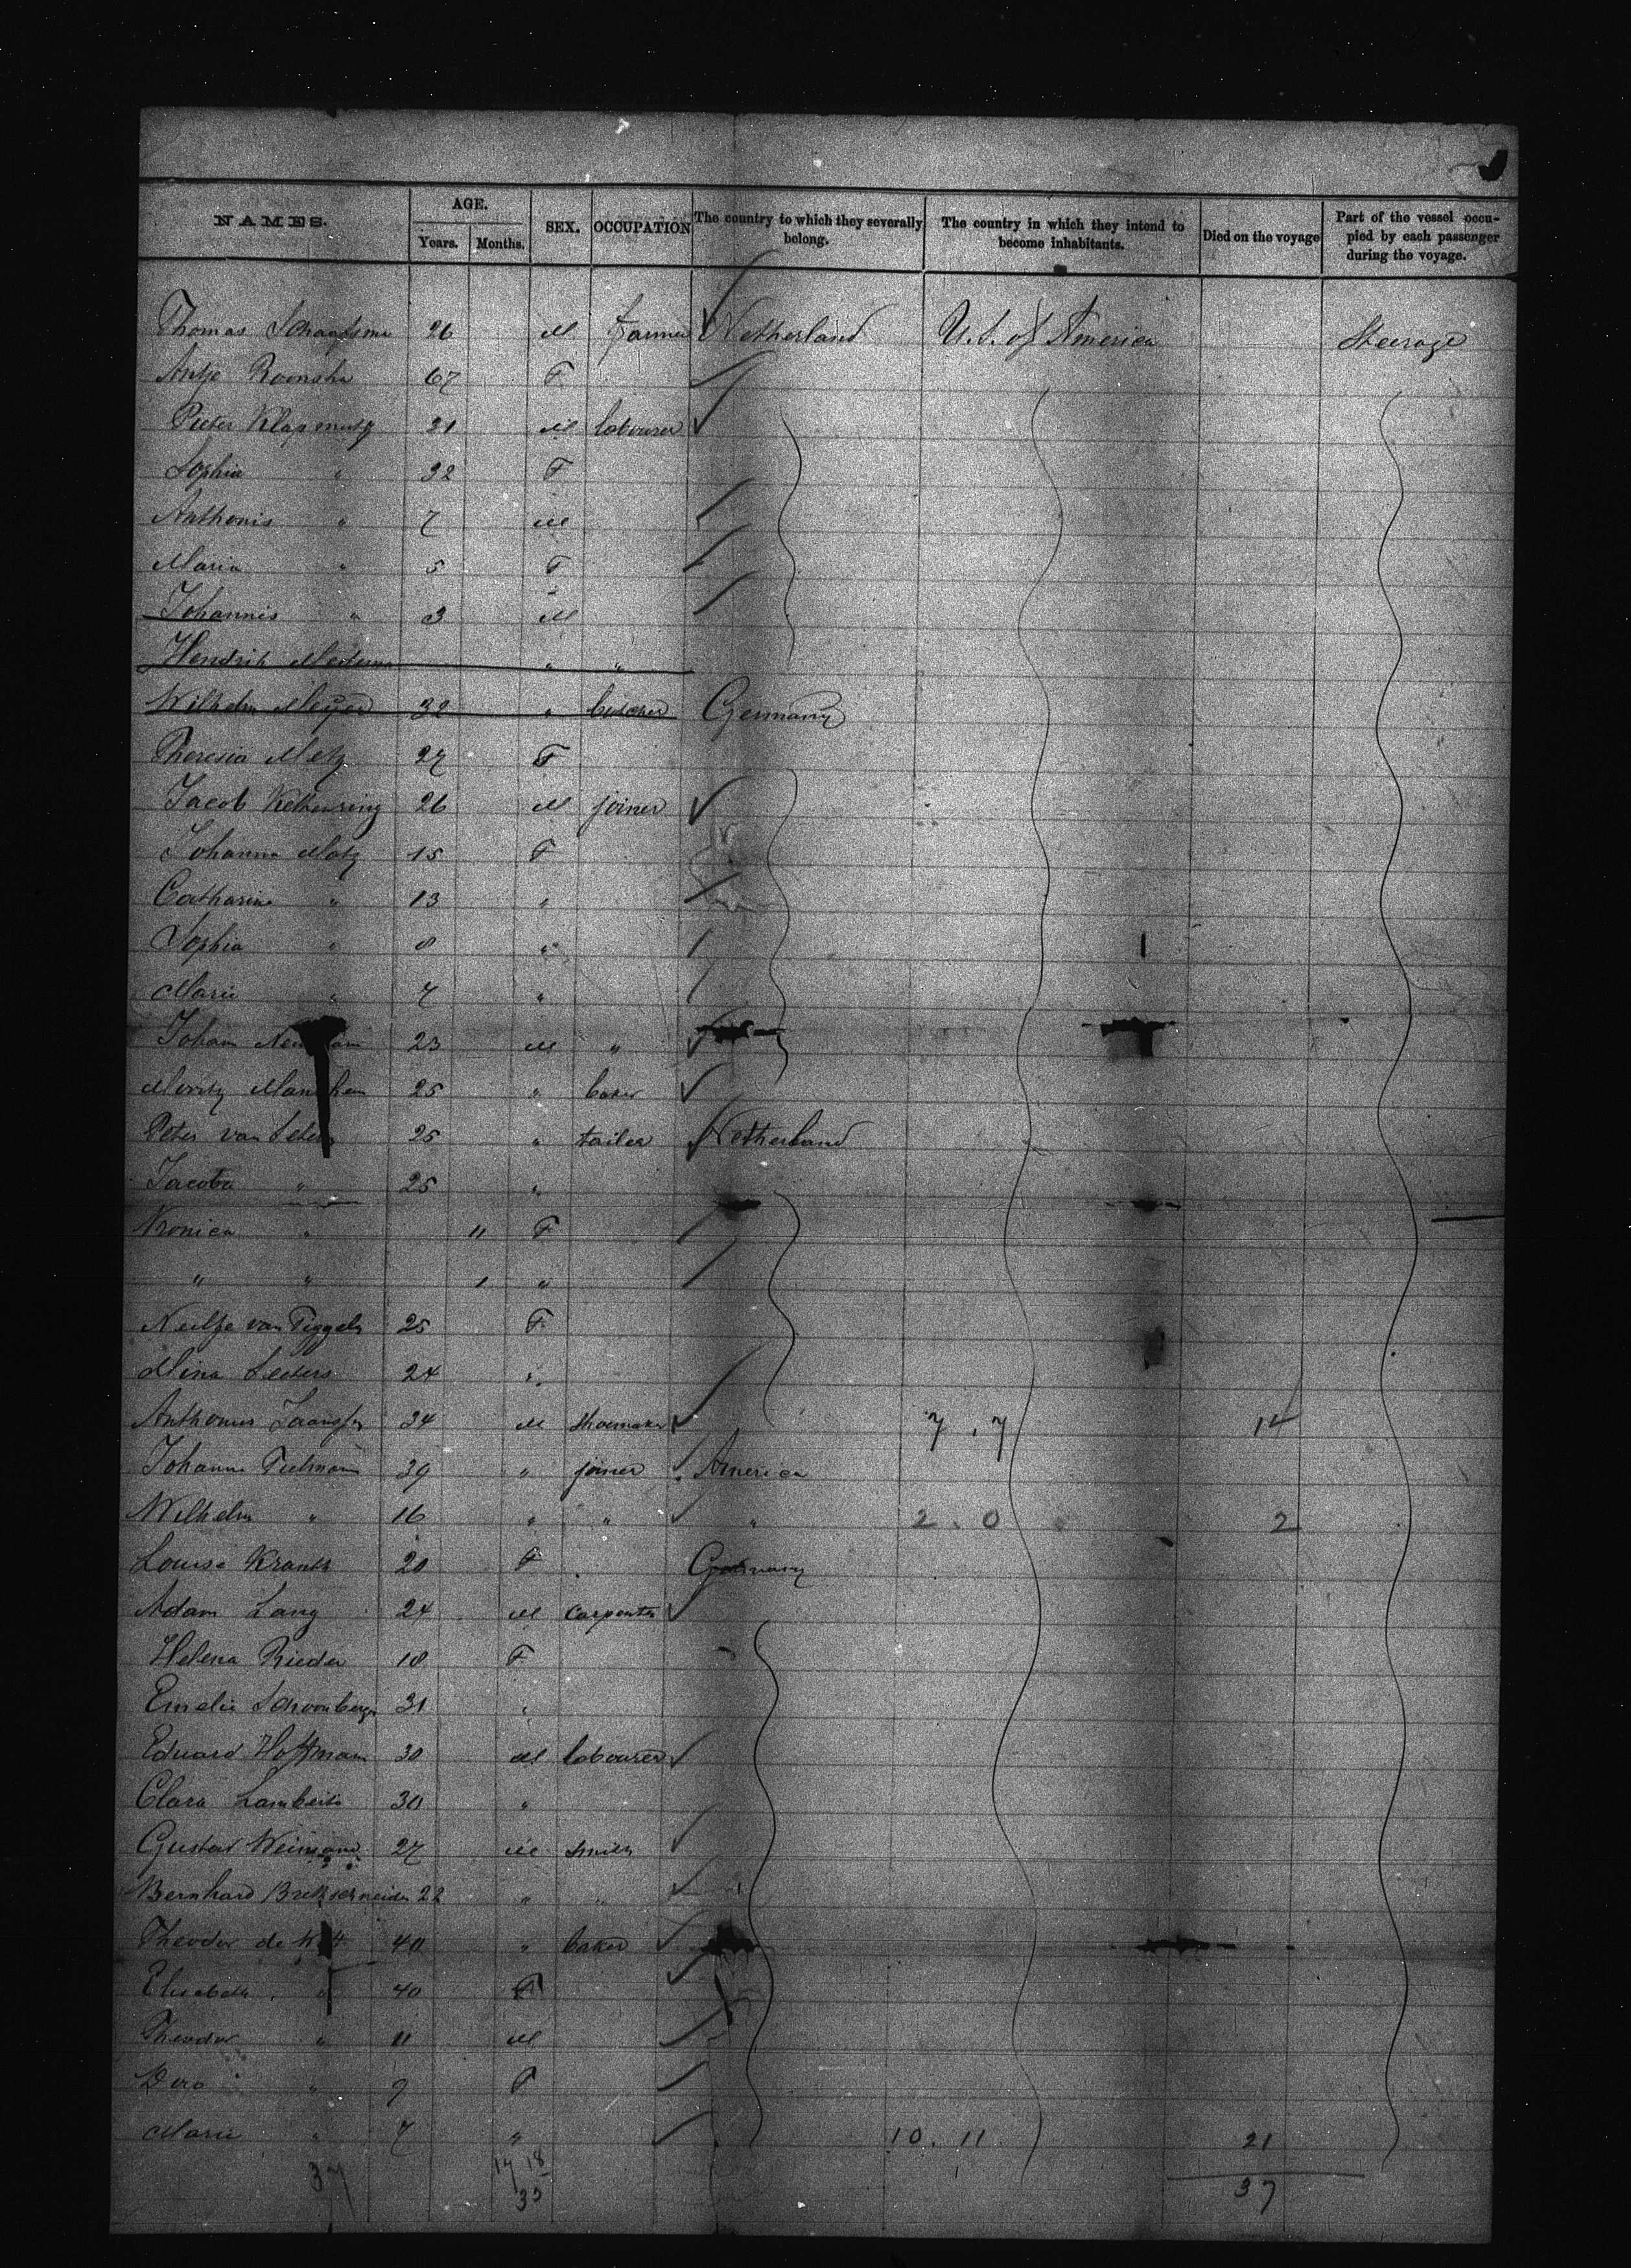 NAMES. AGE. SEX. OCCUPATION The country to which they severally belong. The country in which they intend to become inhabitants. Died on the voyage Part of the vessel occupied by each passenger during the voyage.
Years. Months.
Thomas Schaafsma 26 M farmer Netherland U.S. of America Steerage
Antje 67 F
Pieter Klapmutz 21 M labourer
Sophia " 32 F
Anthonis " 7 M
Maria " 5 F
Johannis " 3 M
Hendrik " "
Wilhelm Meyer 32 " Germany
Theresia Metz 27 F
Jacob Kettenring 26 M joiner
Johanna Motz 15 F
Catharina " 13 "
Sophia " 8 "
Marie " 7 "
Johann 23 M "
Moritz 25 " baker
Peter van 25 " tailor Netherland
Jacoba " 25 "
Vronica " 11 F
" " 1 "
Neeltje van Tiggeln 25 F
Mina Leders 24 "
Anthonus Jaansen 34 M shoemaker 7.7 14
Johann Tielmann 39 " joiner America
Wilhelm " 16 " " " 2.0 2
Louise Kranth 20 F Germany
Adam Lang 24 M Carpenter
Helena Rieder 18 F
Emelie Schoonberger 31 "
Eduard Hoffmann 30 M labourer
Clara Lamberts 30 "
Gustav Weimann 27 M smith
Bernhard Brettschneider 22 " "
Theodor de 40 " baker
Elisabeth " 40 F
Theodor " 11 M
Dora " 9 F
Marie " 7 " 10.11 21
37 17 18 37
35